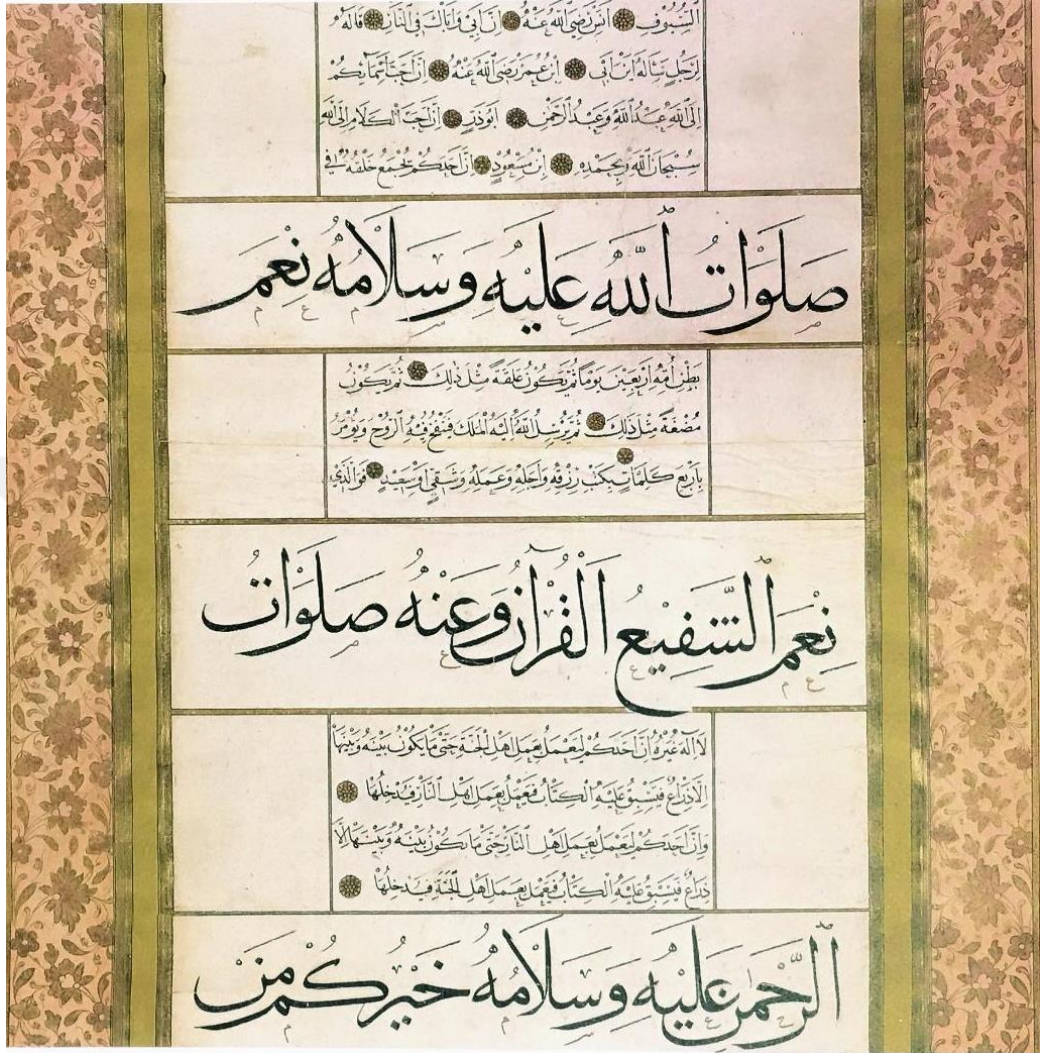 السُّيُوفِ أَنَسٌ رَضِيَ اللهُ عَنْهُ إِنَّ أَبِي وَأَبَاكَ فِي النَّارِ قَالَهُ
لِرَجُلٍ سَأَلَهُ أَيْنَ أَبِي ابْنُ عُمَرَ رَضِيَ اللهُ عَنْهُ إِنَّ أَحَبَّ أَسْمَائِكُمْ
إِلَى اللهِ عَبْدُ اللهِ وَعَبْدُ الرَّحْمٰنِ أَبُو ذَرٍّ إِنَّ أَحَبَّ الْكَلَامِ إِلَى اللهِ
سُبْحَانَ اللهِ وَبِحَمْدِهِ ابْنُ مَسْعُودٍ إِنَّ أَحَدَكُمْ يُجْمَعُ خَلْقُهُ فِي
صَلَوَاتُ اللهِ عَلَيْهِ وَسَلَامُهُ نِعْمَ
بَطْنِ أُمِّهِ أَرْبَعِينَ يَوْمًا ثُمَّ يَكُونُ عَلَقَةً مِثْلَ ذٰلِكَ ثُمَّ يَكُونُ
مُضْغَةً مِثْلَ ذٰلِكَ ثُمَّ يُرْسِلُ اللهُ إِلَيْهِ الْمَلَكَ فَيَنْفُخُ فِيهِ الرُّوحَ وَيُؤْمَرُ
بِأَرْبَعِ كَلِمَاتٍ بِكَتْبِ رِزْقِهِ وَأَجَلِهِ وَعَمَلِهِ وَشَقِيٌّ أَوْ سَعِيدٌ فَوَالَّذِي
نِعْمَ الشَّفِيعُ الْقُرْآنُ وَعَنْهُ صَلَوَاتُ
لَا إِلٰهَ غَيْرُهُ إِنَّ أَحَدَكُمْ لَيَعْمَلُ بِعَمَلِ أَهْلِ الْجَنَّةِ حَتَّى مَا يَكُونُ بَيْنَهُ وَبَيْنَهَا
إِلَّا ذِرَاعٌ فَيَسْبِقُ عَلَيْهِ الْكِتَابُ فَيَعْمَلُ بِعَمَلِ أَهْلِ النَّارِ فَيَدْخُلُهَا
وَإِنَّ أَحَدَكُمْ لَيَعْمَلُ بِعَمَلِ أَهْلِ النَّارِ حَتَّى مَا يَكُونُ بَيْنَهُ وَبَيْنَهَا إِلَّا
ذِرَاعٌ فَيَسْبِقُ عَلَيْهِ الْكِتَابُ فَيَعْمَلُ بِعَمَلِ أَهْلِ الْجَنَّةِ فَيَدْخُلُهَا
الرَّحْمٰنِ عَلَيْهِ وَسَلَامُهُ خَيْرُكُمْ مَنْ